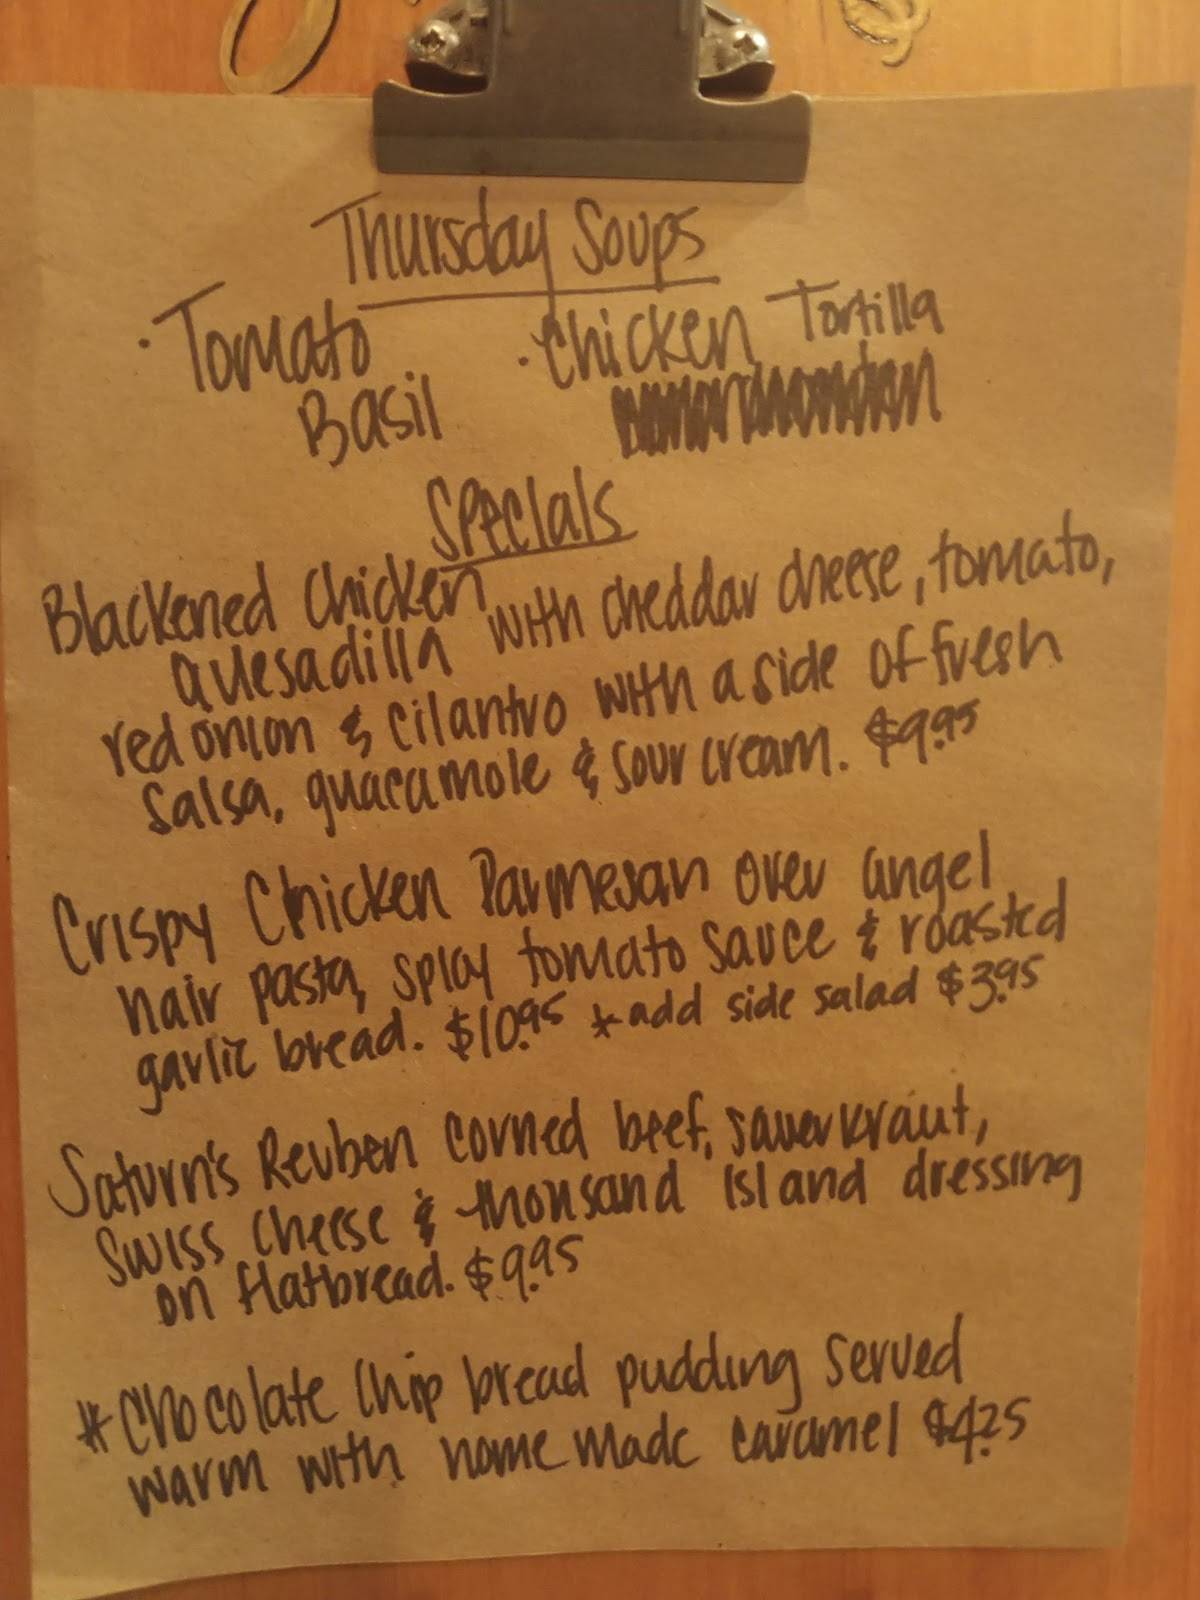 Thursday Soups
· Tomato Basil
· Chicken Tortilla
Specials
Blackened Chicken
Quesadilla with cheddar cheese, tomato,
red onion & cilantro with a side of fresh
salsa, guacamole & sour cream. $9.95
Crispy Chicken Parmesan over angel
hair pasta, spicy tomato sauce & roasted
garlic bread. $10.95 *add side salad $3.95
Saturn's Reuben corned beef, sauerkraut,
swiss cheese & thousand island dressing
on flatbread. $9.95
*Chocolate Chip bread pudding served
warm with home made caramel $4.25